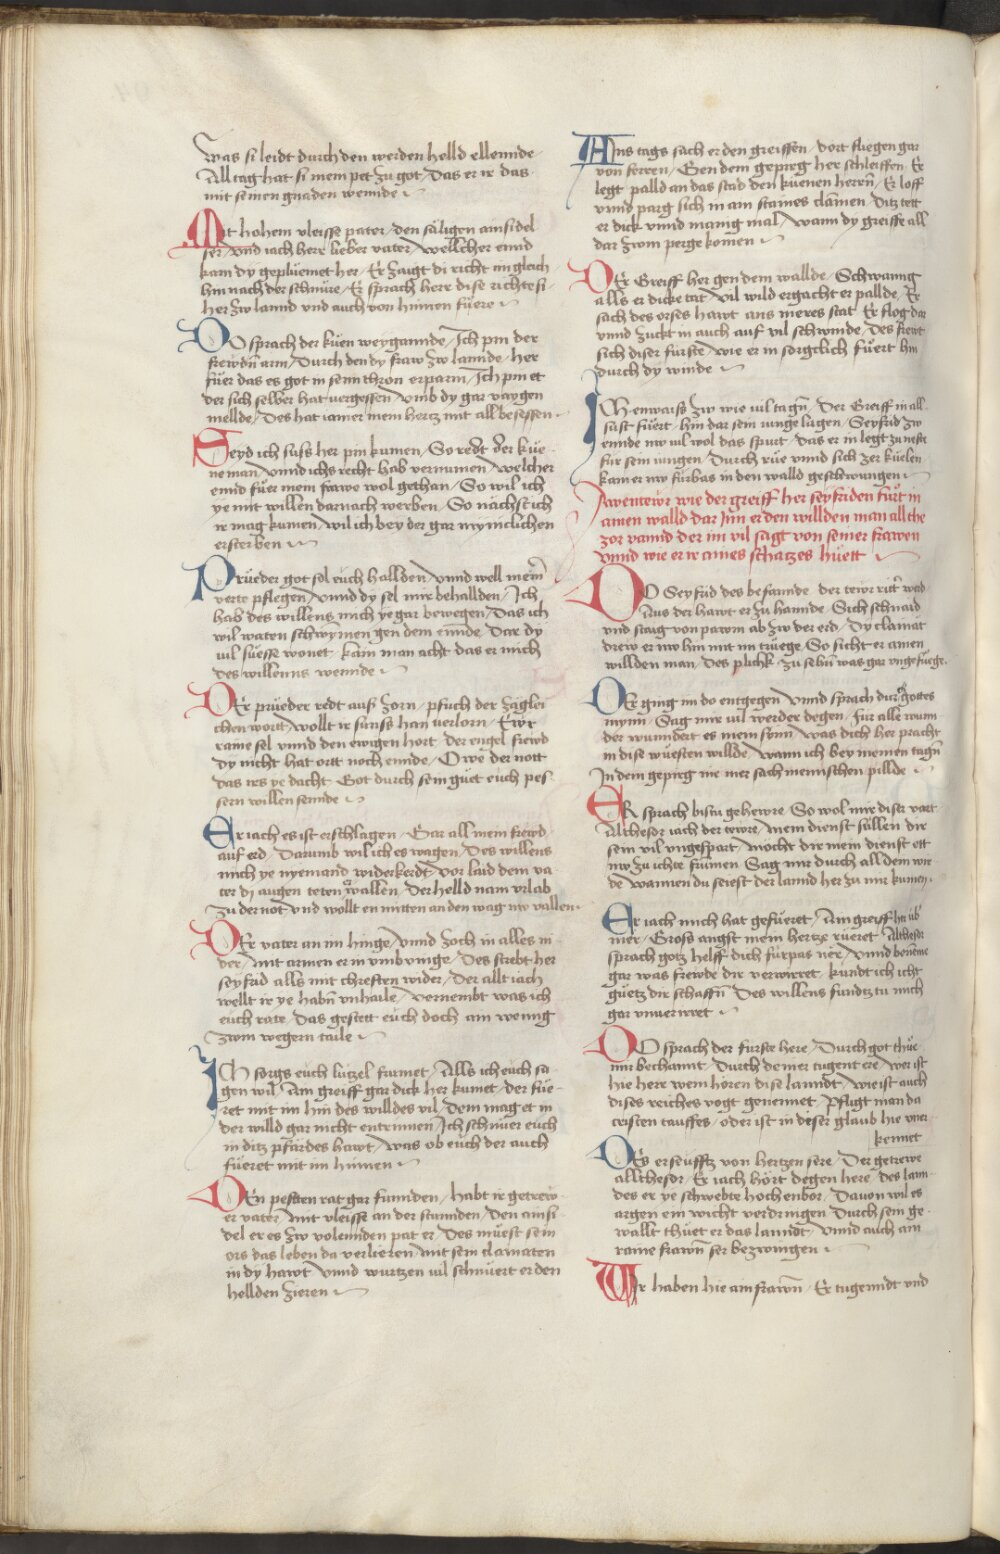 Was si leidt durch den werden helld ellennde
All tag hat si mein pet zu got / Das er ir das
mit seinen gnaden wennde
Mit hohem vleisse pater / den säligen ainsidel
ser / Vnd iach here lieber vater / Wellicher ennd
kam dy gepluemet her / Er zaigt di richt im gleich
hin nach der schnüre / Er sprach here dise richte si
her zw lannd vnd auch von hinnen füere
Do sprach der küen weygannde / Ich pin der
frewdn̄ arm / Durch den dy fraw zw lannde / her
füer das es got in seim thron erparm / Ich pin et
der sich selber hat vergessen / Vmb dy gar vaygen
mellde / Des hat iamer mein hertz mit all besessen
Seyd ich sunst her pin kumen / So redt der küe
ne man / vnnd ichs recht hab vernumen / welcher
ennd füer mein frawe wol gethan / So wil ich
ye mit willen darnach werben / So nächst ich
ir mag kumen / wil ich bey der gar mynnclichen
ersterben
Prüeder got sol euch hallden / vnnd well meiner
verte pflegen / vnnd dy sel mir behallden / Ich
hab des willens mich ye gar bewegen / Das ich
wil waten schwymen gen dem ennde / Dar dy
vil süesse wonet / kain man acht das er mich
des willenns wennde
Der prüeder redt auß zorn / pfuch der zäglei
chen wortt / wollt ir sunst han verlorn / Ewr
raine sel vnnd den ewigen hort / der engel frewd
dy nicht hat ortt noch ennde / O we der nott
das irs ye dacht / Got durch sein güet euch pes
sern willen sennde
Er iach es ist erschlagen / Gar all mein frewd
auf erd / Darumb wil ich es wagen / Des willens
mich ye nyemand widerkerdt / Vor laid dem va
ter dj augen teten wallen / Der helld nam vrlab
zu der not vnd wollt en mitten an den wag nw vallen
Der vater an im hinge / vnnd zoch in alles ni
der / mit armen er in vmbvinge / Des strebt her
seyfrid alls mit chrefften wider / Der allt iach
wellt ir ye habn̄ vnhaile / vernembt was ich
euch rate / Das gestett euch doch ain wenig
zwm wegern taile
Ich sorgs euch lützel frumet / Alls ich euch sa
gen wil / Ain greiff gar dick her kumet / der füe
ret mit im hin des willdes vil / Dem mag et in
der willd gar nicht entrinnen / Ich schmier euch
in ditz pfärdes hawt / was ob euch der auch
füeret mit im hinnen
Den pessten rat gar funnden / habt ir getrew
er vater / mit vleisse an der stunnden / Den ainsi
del er es zw volennden pat er / Des müest sein
ors das leben da verlieren / mit sein clainaten
in dy hawt / vnnd wurtzen vil schmiert er den
hellden zieren
Ains tags sach er den greiffen / dort fliegen gar
von ferren / Gen dem gepirg her schleiffen / Er
legt palld an das stad den küenen herrn̄ / Er loff
vnnd parg sich in ain staines clamen / Ditz tett
er dick vnnd manig mal / wann dy greiffe all
dar zwm perge komen
Der Greiff her gen dem wallde / Schwanng
alls er dicke tat / vil wild ergacht er pallde / Er
sach des orses hawt ans meres stat / Er flog dar
vnnd zuckt in auch auf vil schwinde / des frewt
sich diser fürste / wie er in sorgclich füert hin
durch dy winde
Ich enwaiß zw wie vil tagn̄ / Der Greiff in all
sust füert / hin dar sein iunge lagen / Seyfrid zw
ennde nw vil wol das spurt / Das er in legt zu neste
für sein iungen / Durch rüe vnnd sich zer küelen
kam er nw fürbas in den walld geschwungen
Awentewr wie der greiff her seyfriden fürt in
ainen walld dar Inn er den willden man allthe
zor vannd der im vil sagt von seiner frawen
vnnd wie er ir aines schatzes hüett
Do Seyfrid des befannde / der tewr rittr̄ ward
Aus der hawt er zu hannde / Sich schnaid
vnd staig von pawm ab zw der erd / Dy clainat
drew er nw hin mit im trüege / So sicht er ainen
willden man / Des plickh zu sehn̄ was gar vngefüege
Der ging im do entgegen / vnnd sprach durch gottes
mynn / Sag mir vil werder degen / für alle wunn
der wundert es mein synn / was dich her pracht
in dise wüesten willde / wann ich bey meinen tagn̄
In dem gepirg nie mer sach mennischen pillde
Er sprach bistu gehewre / So wol mir diser vart
Althesor iach der tewre / mein dienst süllen dir
sein vil vngespart / möcht dir mein dienst ett
nw zu ichte frümen / Sag mir durch all dem wir
de / wannen du seiest der lannd her zu mir kumen
Er iach mich hat gefüeret / Ain greiff hin üb
mer / Gross angst mein hertze rüeret / Althesor
sprach gotz helff dich fürpas ner / vnnd benenne
gar was frewde dir verwirret / kundt ich icht
güetz dir schaffn̄ / Des willens fundtztu mich
gar vnuerirret
Do sprach der fürste here / Durch got thue
mir bechannt / Durch deiner tugent ere / wer ist
hie herr / wem hören dise lanndt / wie ist auch
dises reiches vogt genennet / Pfligt man da
cristen tauffes / oder ist in dieser glaub hie vner
kennet
Des erseüfftz von hertzen sere / Der getrewe
allthesor / Er iach hört degen here / Des lann
des er ye schwebte hoch enbor / Dauon wil es
argen ein wicht verdringen / Durch sein ge
wallt thüet er das lanndt / vnnd auch ain
raine frawn̄ ser bezwingen
Wir haben hie ain frawn̄ / Er tugenndt vnd